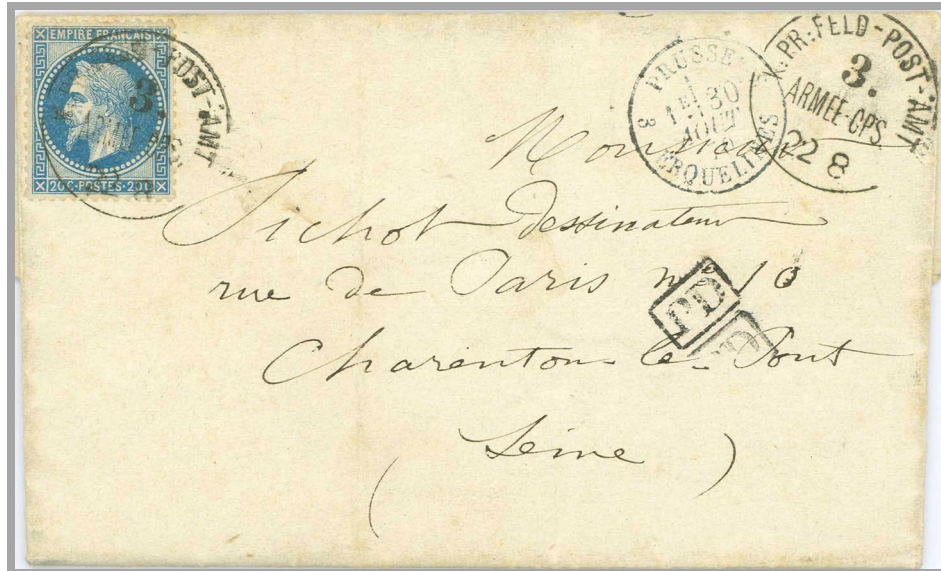 EMPIRE FRANÇAIS
20 C · POSTES · 20 C
POST-AMT
3.
PRUSSE
3
30
AOUT
ERQUELINES
K. PR. FELD-POST-AMT
3.
ARMEE-CPS
22 8
Monsieur
Pichot dessinateur
rue de Paris no 10
PD
PD
Charenton-le-Pont
(Seine)